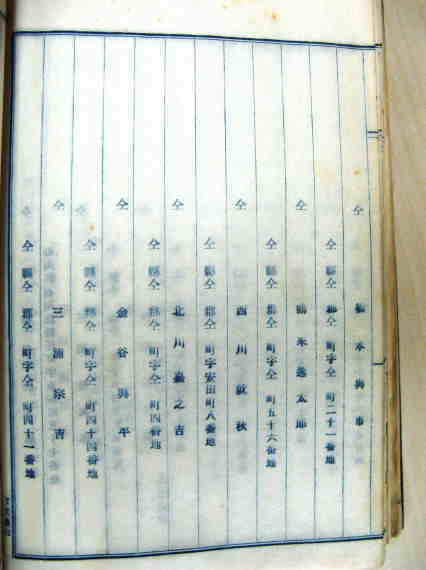 仝 本
仝 縣仝 郡仝 町字仝 町二十一番地
仝 太郎
仝 縣仝 郡仝 町字仝 町五十六番地
仝 西川 秋
仝 縣仝 郡仝 町字安田町八番地
仝 北川 之吉
仝 縣仝 郡仝 町字仝 町四番地
仝 金谷 平
仝 縣仝 郡仝 町字仝 町四十四番地
仝 三浦宗吉
仝 縣仝 郡仝 町字仝 町四十一番地